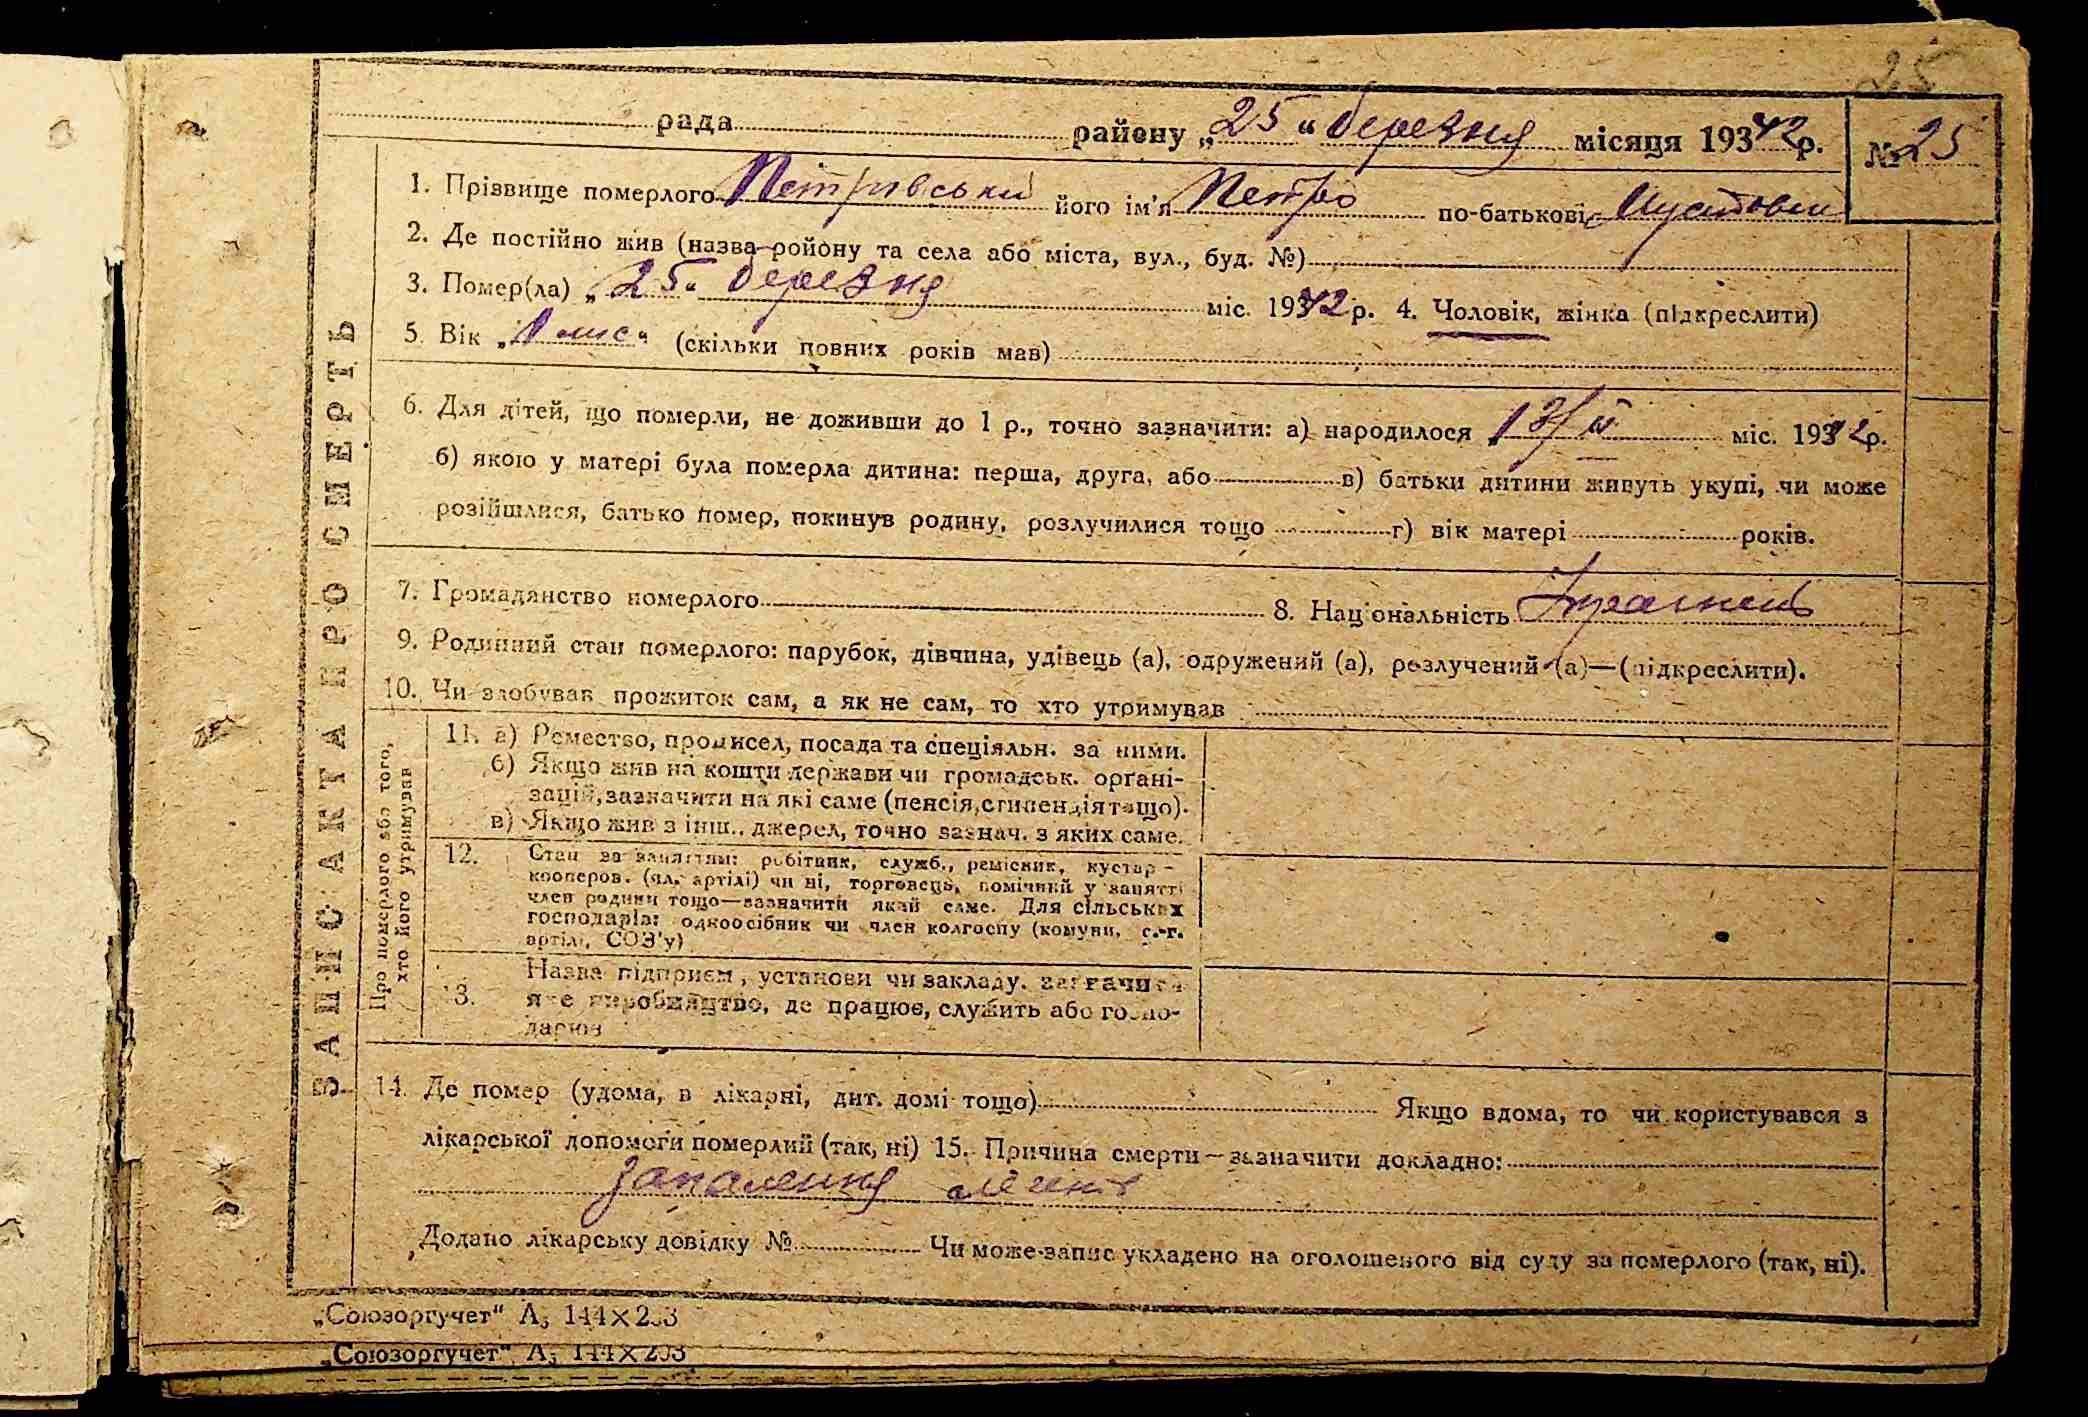 25
рада районy „25“ березня місяця 1942 р. № 25
1. Прізвище померлого Петрівський його ім'я Петро по-батькові
2. Де постійно жив (назва ройону та села або міста, вул., буд. №)
3. Помер(ла) „25“ березня міс. 1942 р. 4. Чоловік, жінка (підкреслити)
5. Вік „ “ (скільки повних років мав)
6. Для дітей, що померли, не доживши до 1 р., точно зазначити: а) народилося міс. 1942 р.
б) якою у матері була померла дитина: перша, друга, або в) батьки дитини живуть укупі, чи може
розійшлися, батько помер, покинув родину, розлучилися тощо г) вік матері років.
7. Громадянство померлого 8. Національність Українець
9. Родинний стан померлого: парубок, дівчина, удівець (а), одружений (а), розлучений (а)—(підкреслити).
10. Чи здобував прожиток сам, а як не сам, то хто утримував
ЗАПИС АКТА ПРО СМЕРТЬ
Про померлого або того,
хто його утримував
11. а) Ремество, промисел, посада та спеціяльн. за ними.
б) Якщо жив на кошти держави чи громадськ. орґані-
зацій, зазначити на які саме (пенсія, стипендія тощо).
в) Якщо жив з інш.. джерел, точно зазнач. з яких саме.
12. Стан за заняттям: робітник, служб., ремісник, кустар-
кооперов. (чл. артілі) чи ні, торговець, помічний у занятті
член родини тощо—зазначити який саме. Для сільських
господарів: одноосібник чи член колгоспу (комуни, с.-г.
артілі, СОЗ'у)
13. Назва підприєм, установи чи закладу. зазначити
яке виробництво, де працює, служить або госпо-
дарює
14. Де помер (удома, в лікарні, дит. домі тощо) Якщо вдома, то чи користувався з
лікарської допомоги померлий (так, ні) 15. Причина смерти—зазначити докладно:
запалення легенів
Додано лікарську довідку № Чи може запис укладено на оголошеного від суду за померлого (так, ні).
„Союзоргучет“ А₅ 144×203
„Союзоргучет“ А₅ 144×203